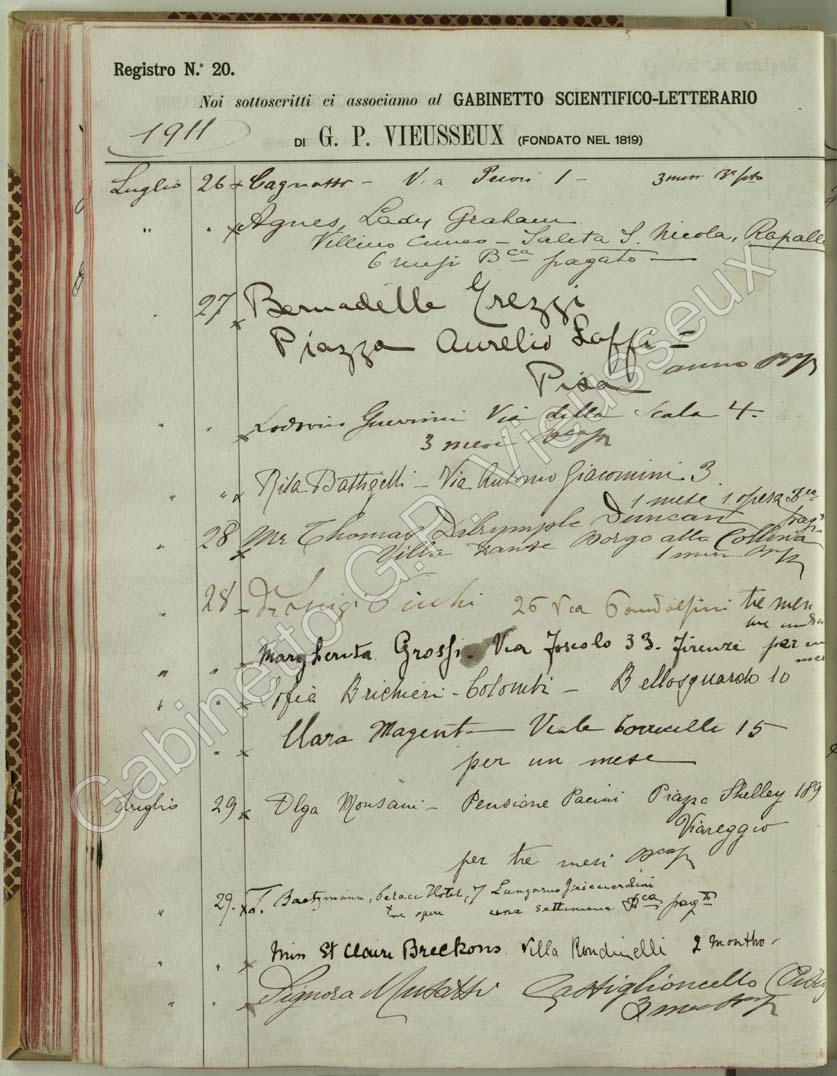 Registro N.º 20.
Noi sottoscritti ci associamo al GABINETTO SCIENTIFICO-LETTERARIO
1911 DI G. P. VIEUSSEUX (FONDATO NEL 1819)
Luglio 26 x Cagnatto - Via Pecori 1 - 3 mesi
" " x Agnes, Lady Graham
Villino Cuneo - Saleta S. Nicola, Rapallo
6 mesi Bca pagato
27 x Bernadette Trezzi
Piazza Aurelio Saffi -
Pisa anno
" " x Lodovico Guerrini Via della Scala 4.
3 mesi
" " x Rita Battigelli - Via Antonio Giacomini 3
1 mese 1 opera Bca
" 28 x Mr Thomas Dalrymple Duncan pagto
Villa Borgo alla Collina
1 mese
28 Dr Luigi 26 Via Pandolfini tre mesi
" " Margherita Grossi Via Foscolo 33. Firenze per un
mese
" " Sofia Brichieri-Colombi - Bellosguardo 10
" " x Clara Magenta - Viale Torricelli 15
per un mese
Luglio 29 x Olga Monsani - Pensione Pacini Piazza Shelley 189
Viareggio
per tre mesi
" 29. x Hotel, 7 Lungarno Guicciardini
tre opere una settimana Bca pagto
" " Miss St Claire Breckons Villa Rondinelli 2 months
" " Signora Musatti Castiglioncello
3 mesi
Gabinetto G.P. Vieusseux